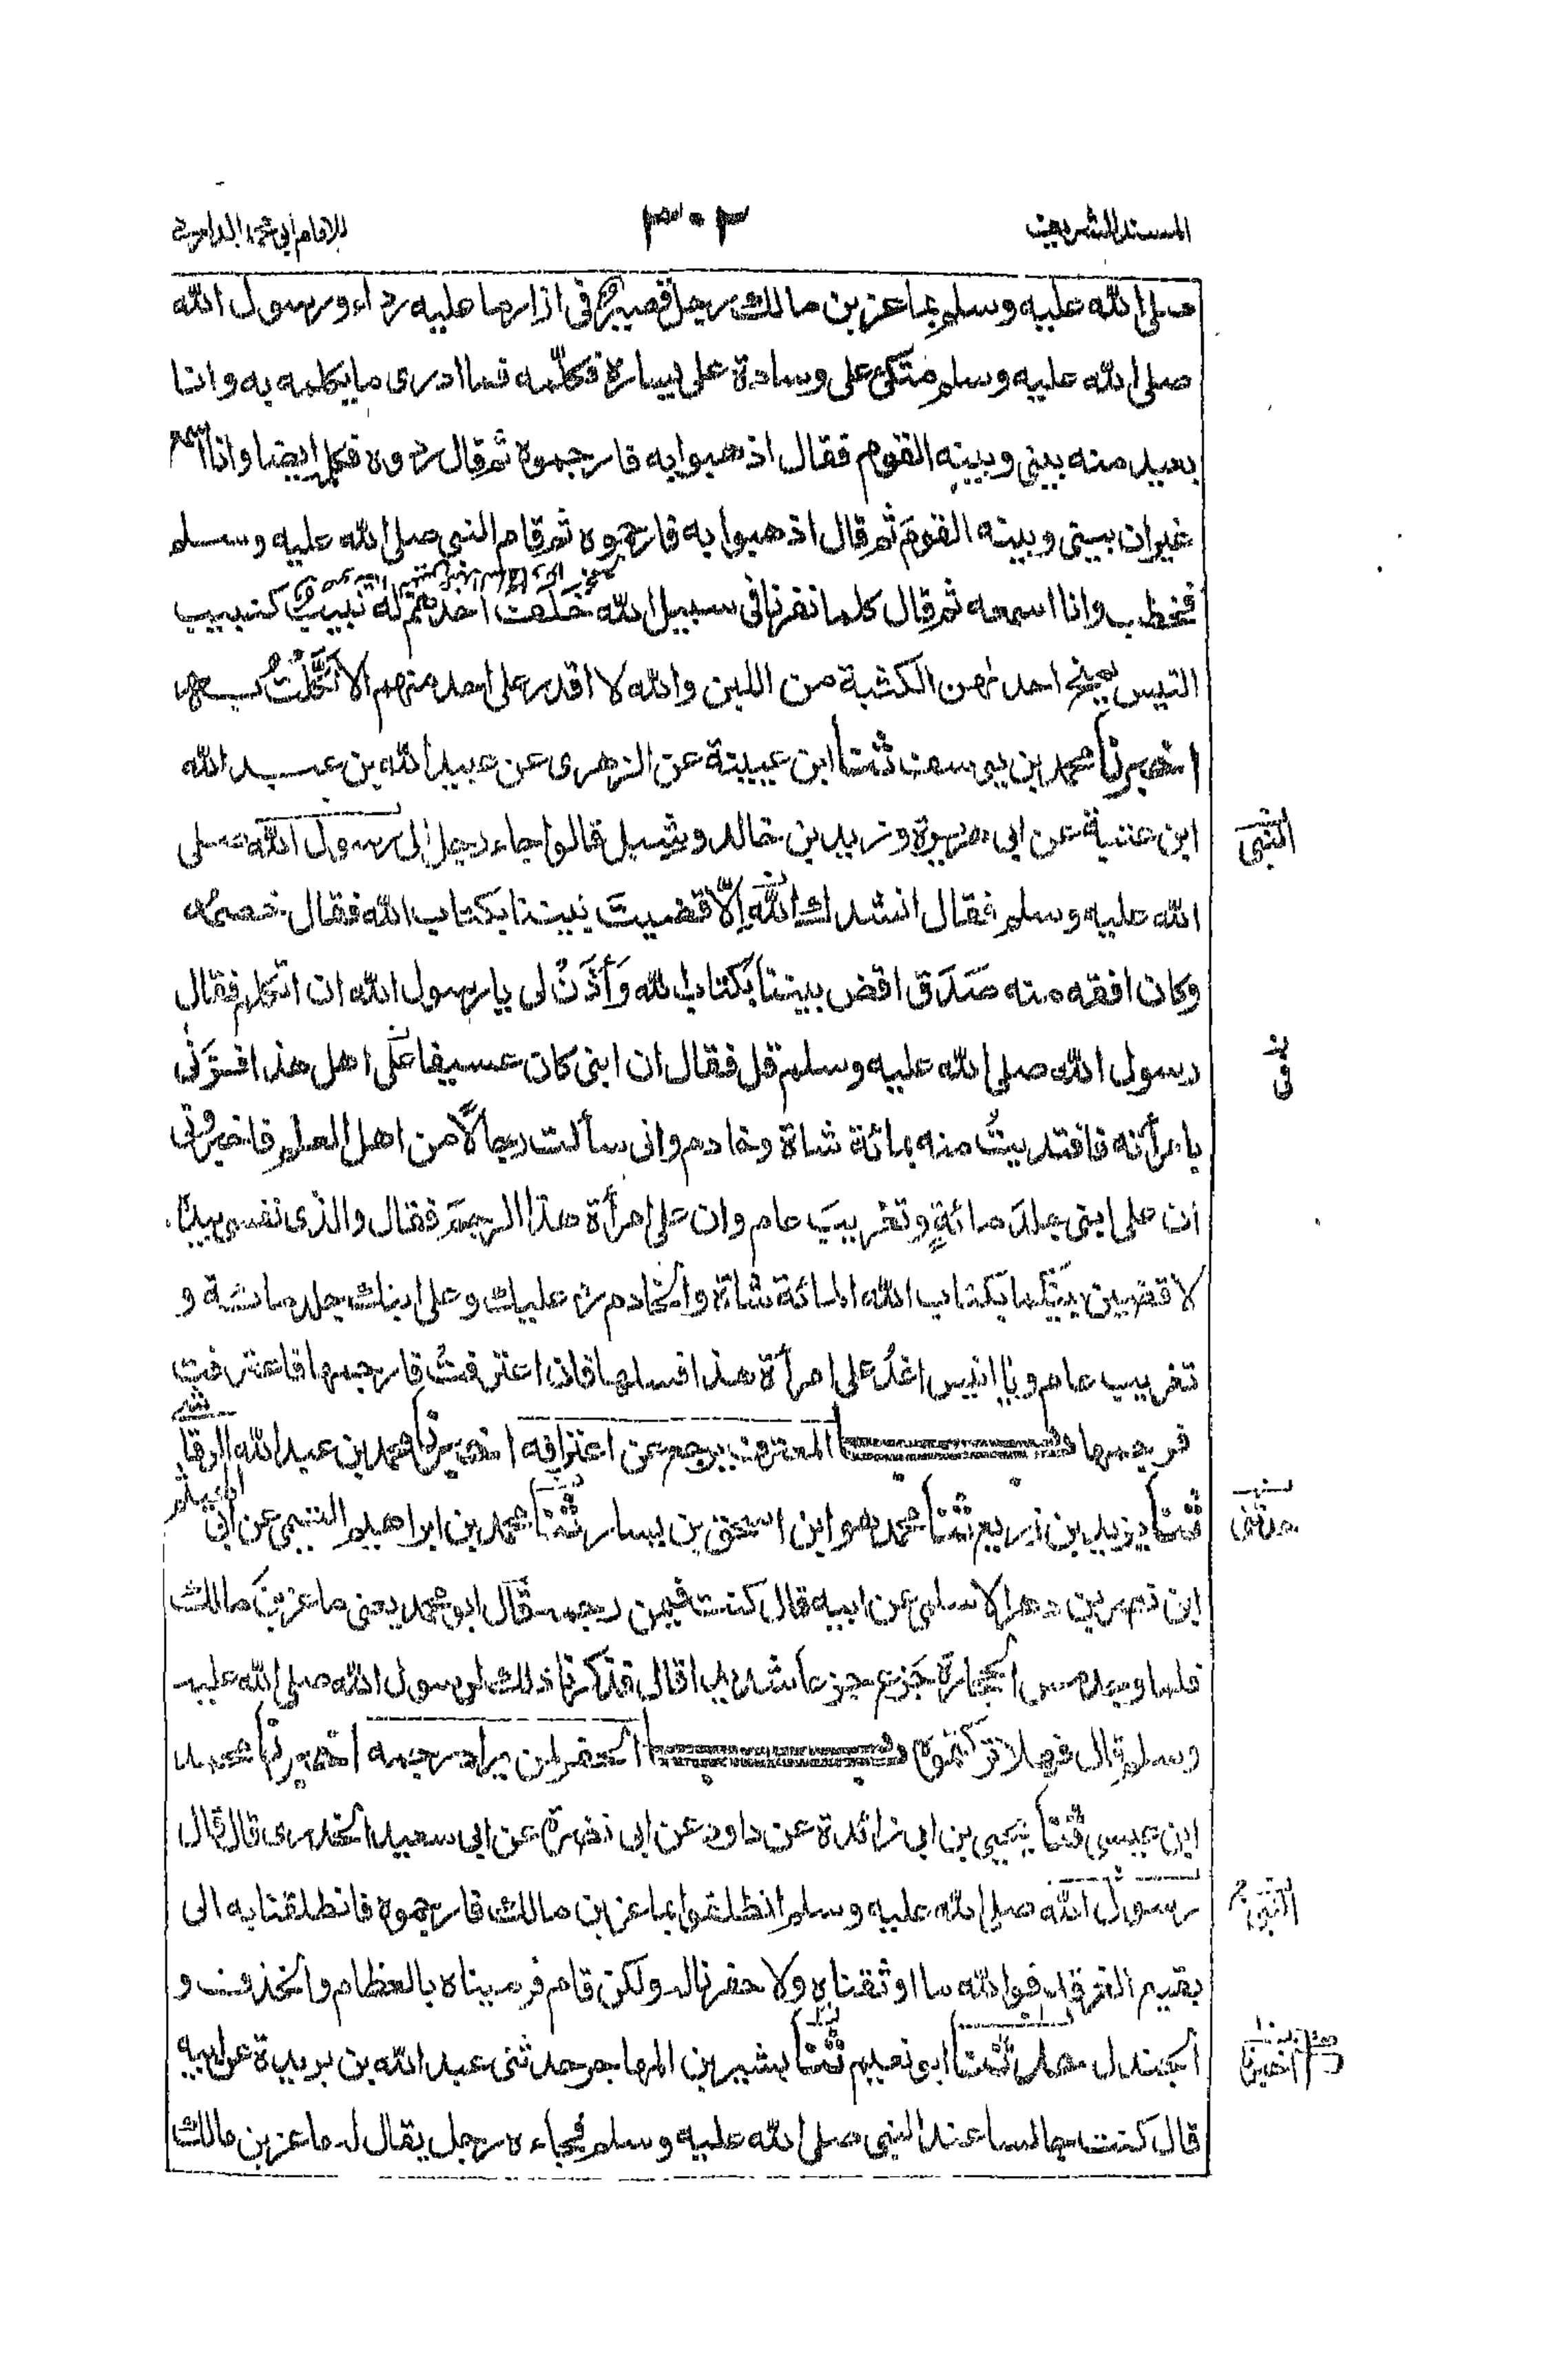 المسند الشريف
٣٠٢
للامام أبي محمد الدارمي
صلى الله عليه وسلم بماعز بن مالك رجل قصير في ازار ما عليه رداء ورسول الله
صلى الله عليه وسلم متكئ على وسادة على يساره فكلّمه فما ادرى ما يكلمه به وانا
بعيد منه بينى وبينه القوم فقال اذهبوا به فارجموه ثم قال ردوه فكلم ايضا وانا اسمع
غير ان بينى وبينه القوم ثم قال اذهبوا به فارجموه ثم قام النبى صلى الله عليه وسلم
فخطب وانا اسمعه ثم قال كلما نفرنا فى سبيل الله خَلَف احدهم له نبيبٌ كنبيب
التيس يمنح احدٰهن الكثبة من اللبن والله لا اقدر على احد منهم الا نَكَّلْتُ به
اخبرنا محمد بن يوسف ثنا ابن عيينة عن الزهرى عن عبيد الله بن عبد الله
ابن عتبة عن ابى هريرة وزيد بن خالد وشبل قالوا جاء رجل الى رسول الله صلى
النبي
الله عليه وسلم فقال انشدك الله اِلّا قضيتَ بيننا بكتاب الله فقال خصمه
وكان افقه منه صَدَق اقض بيننا بكتاب الله وَأْذَنْ لى يا رسول الله ان اتكلم فقال
رسول الله صلى الله عليه وسلم قل فقال ان ابنى كان عسيفا على اهل هذا فزَنٰى
في
بامرأته فافتديتُ منه بمائة شاة وخادم وانى سألت رجالًا من اهل العلم فاخبرونى
ان على ابنى جلدَ مائةٍ وتغريبَ عام وان على امرأة هذا الرجمَ فقال والذى نفسى بيده
لاقضين بينكما بكتاب الله المائة شاة والخادم رد عليك وعلى ابنك جلد مائة و
تغريب عام ويا انيس اغدُ على امرأة هذا فسلها فان اعترفتْ فارجمها فاعترفت
فرجمها باب المعترف يرجع عن اعترافه اخبرنا محمد بن عبد الله الرقاشى
ثنا يزيد بن زريع ثنا محمد هو ابن اسحق بن يسار ثنا محمد بن ابراهيم التيمى عن ابى الهيثم
حدثني
ابن نصر بن دهر الاسلمى عن ابيه قال كنت فيمن رجمه قال ابو محمد يعنى ماعز بن مالك
فلما وجد مس الحجارة جَزِع جزعا شديدا قال فذكرنا ذلك لرسول الله صلى الله عليه
وسلم قال فهلا تركتموه باب الحفر لمن يراد رجمه اخبرنا محمد
ابن عيسى ثنا يحيى بن ابى زائدة عن داود عن ابى نضرة عن ابى سعيد الخدرى قال قال
رسول الله صلى الله عليه وسلم انطلقوا بماعز بن مالك فارجموه فانطلقنا به الى
النبي
بقيع الغرقد فوالله ما اوثقناه ولا حفرنا له ولكن قام فرميناه بالعظام والخذف و
الجندل ثنا ابو نعيم ثنا بشير بن المهاجر حدثنى عبد الله بن بريدة عن ابيه
اخبرنا
قال كنت جالسا عند النبى صلى الله عليه وسلم فجاءه رجل يقال له ماعز بن مالك